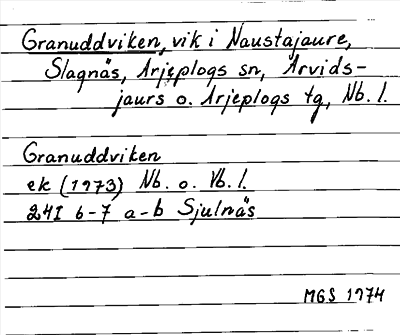 Granuddviken, vik i Naustajaure,
Slagnäs, Arjeplogs sn, Arvids-
jaurs o. Arjeplogs tg, Nb. l.
Granuddviken
ek (1973) Nb. o. Vb. l.
24I 6-7 a-b Sjulnäs
MGS 1974